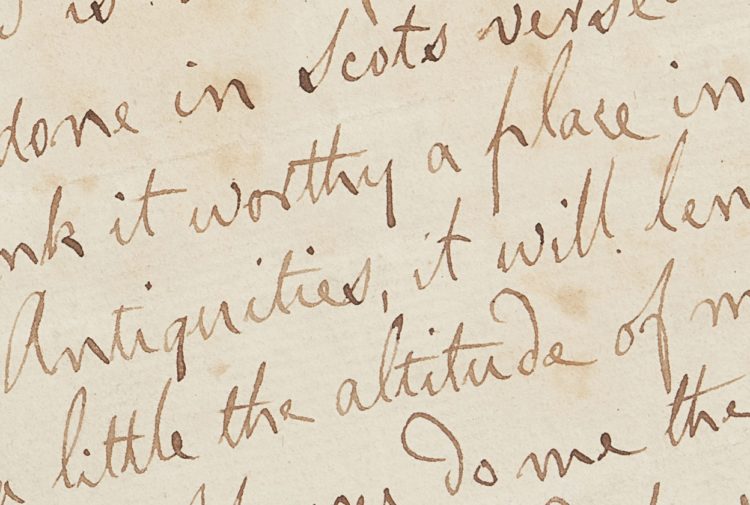 is
done in Scots verse
it worthy a place in
Antiquities, it will len
a little the altitude of m
do me the